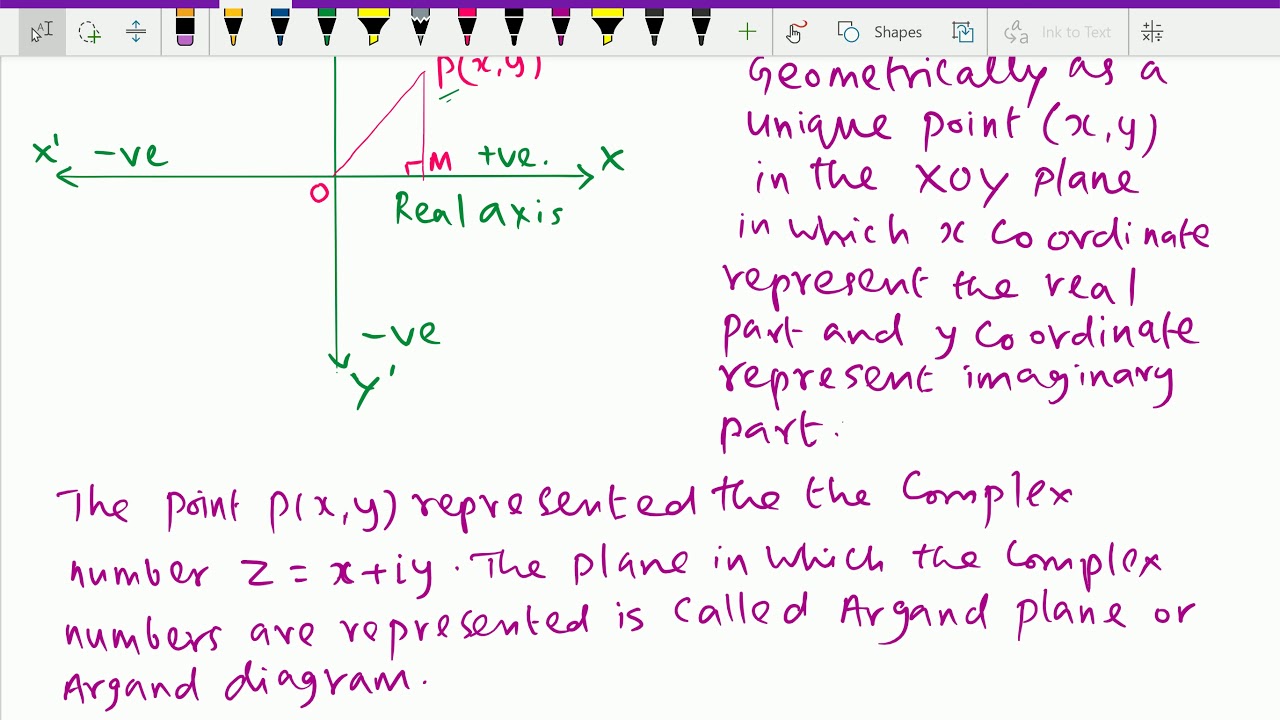 Shapes
Ink to Text
P(x,y)
x' -ve
M
+ve.
X
O
Real axis
-ve
Y'
Geometrically as a
unique point (x,y)
in the XOY plane
in which x coordinate
represent the real
part and y coordinate
represent imaginary
part.
The point P(x,y) represented the the complex
number z = x+iy. The plane in which the complex
numbers are represented is called Argand plane or
Argand diagram.